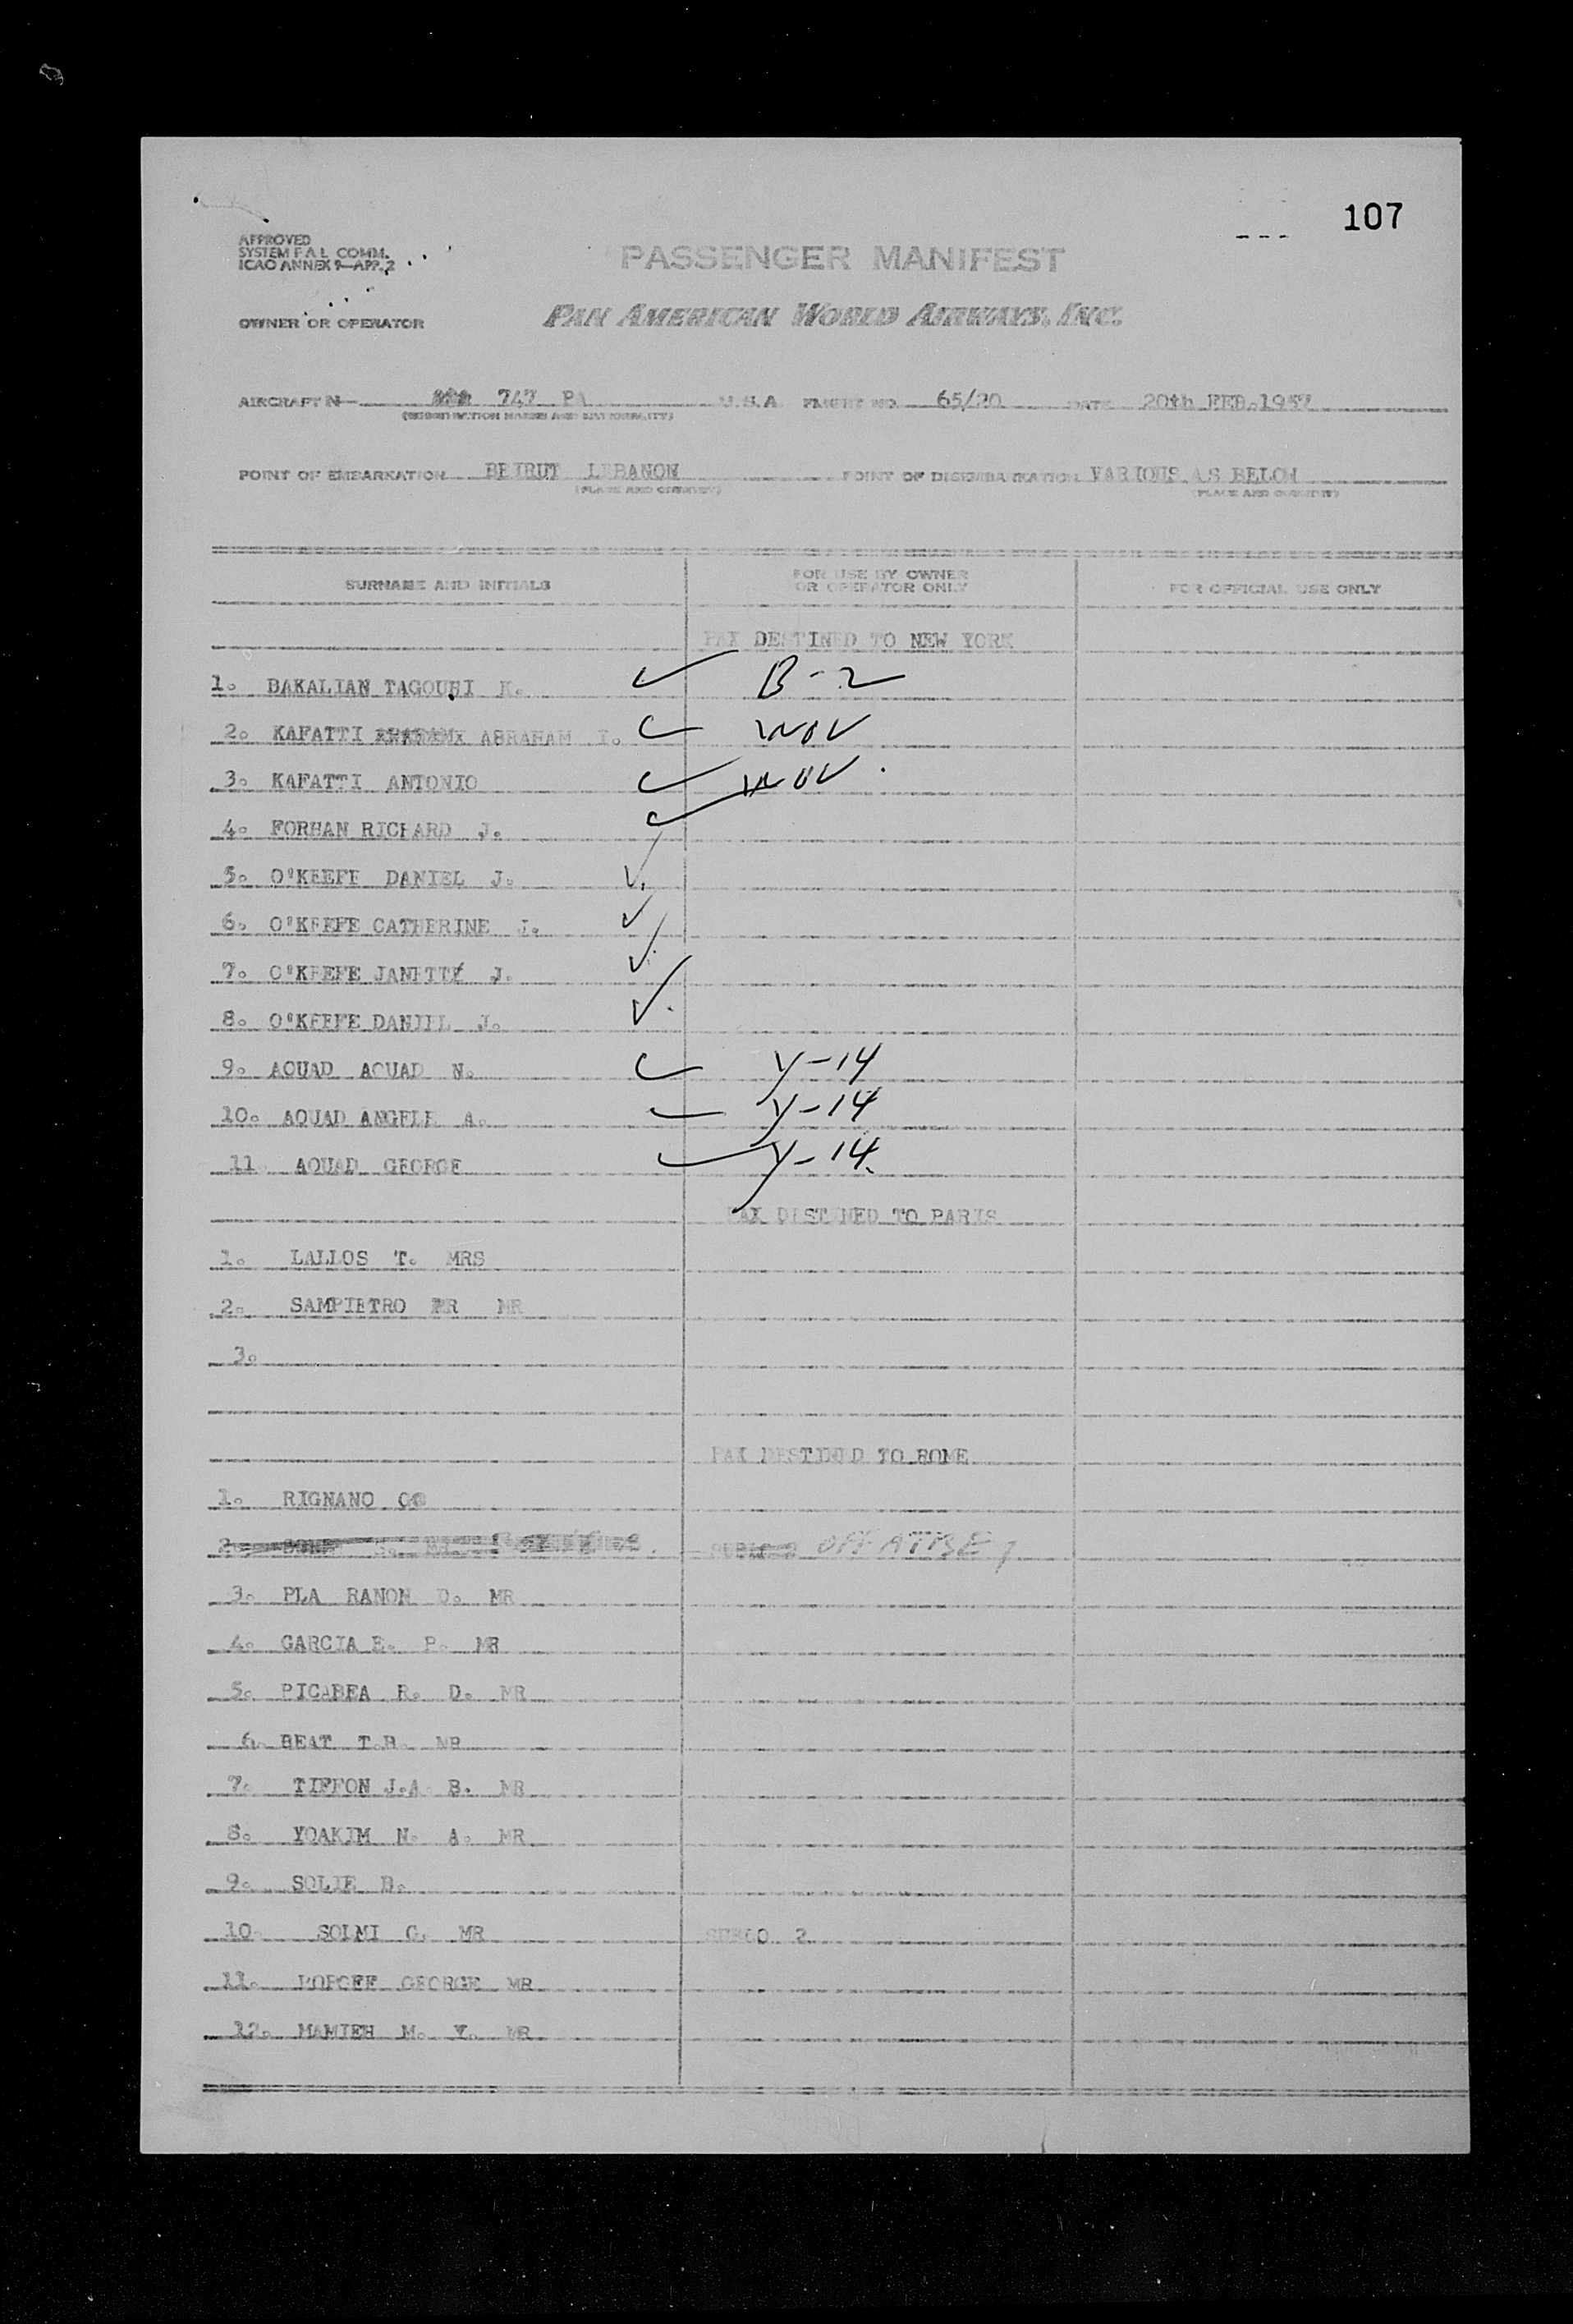 107
APPROVED
SYSTEM F A L COMM.
ICAO ANNEX 9-APP. 2
PASSENGER MANIFEST
OWNER OR OPERATOR PAN AMERICAN WORLD AIRWAYS, INC.
AIRCRAFT N- 747 PA U.S.A. FLIGHT NO. 65/20 DATE 20th FEB. 1957
(REGISTRATION MARKS AND NATIONALITY)
POINT OF EMBARKATION BEIRUT LEBANON POINT OF DISEMBARKATION VARIOUS AS BELOW
(PLACE AND COUNTRY) (PLACE AND COUNTRY)
SURNAME AND INITIALS FOR USE BY OWNER OR OPERATOR ONLY FOR OFFICIAL USE ONLY
PAX DESTINED TO NEW YORK
1. BAKALIAN TAGOUHI K. ✓ B-2
2. KAFATTI ABRAHAM I. ✓
3. KAFATTI ANTONIO ✓
4. FORHAN RICHARD J. ✓
5. O'KEEFE DANIEL J. ✓
6. O'KEEFE CATHERINE J. ✓
7. O'KEEFE JANETTE J. ✓
8. O'KEEFE DANIEL J. ✓
9. AOUAD AOUAD N. ✓ Y-14
10. AOUAD ANGELE A. ✓ Y-14
11 AOUAD GEORGE ✓ Y-14
PAX DESTINED TO PARIS
1. LALLOS T. MRS
2. SAMPIETRO MR MR
3.
PAX DESTINED TO ROME
1. RIGNANO
2. OFF
3. PLA RAMON D. MR
4. GARCIA E. P. MR
5. PICABEA R. D. MR
6. BEAT T.R. MR
7. TIFFON J.A. B. MR
8. YOAKIM N. A. MR
9. SOLIE B.
10. SOLMI G. MR SUBLO 2
11. POPOFF GEORGE MR
12. MAMIEH M. Y. MR